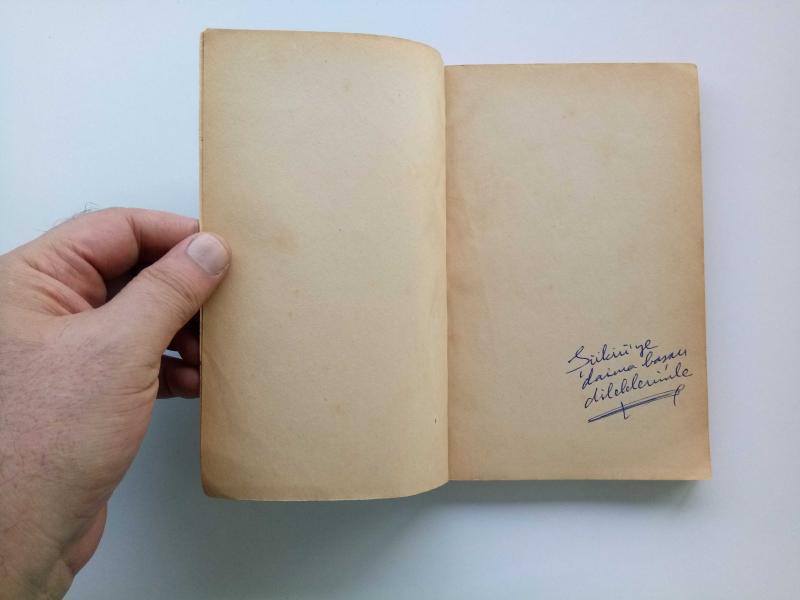 Şükrü'ye
daima başarı
dileklerimle